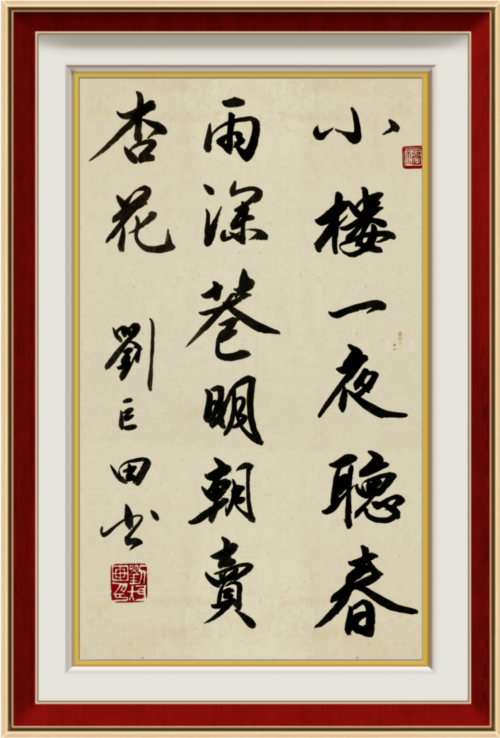 小楼一夜聽春
雨深巷明朝賣
杏花 劉巨田书